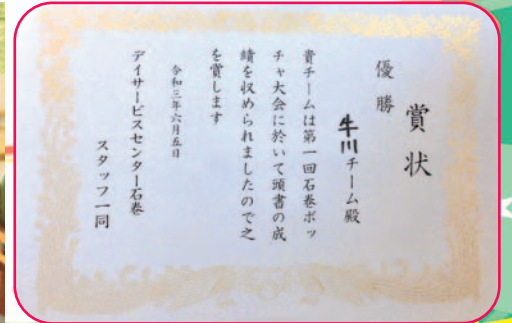 賞状
優勝
牛川チーム殿
貴チームは第一回石巻ボッ
チャ大会に於いて頭書の成
績を収められましたので之
を賞します
令和三年六月五日
デイサービスセンター石巻
スタッフ一同